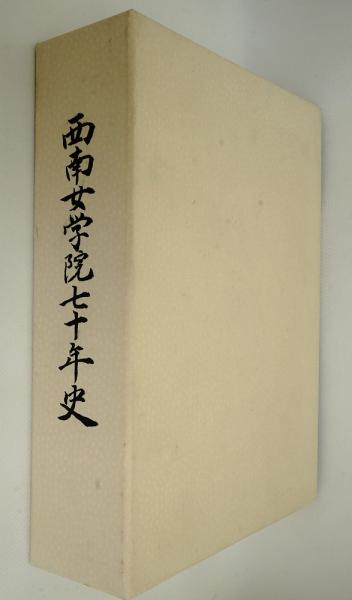 西南女学院七十年史